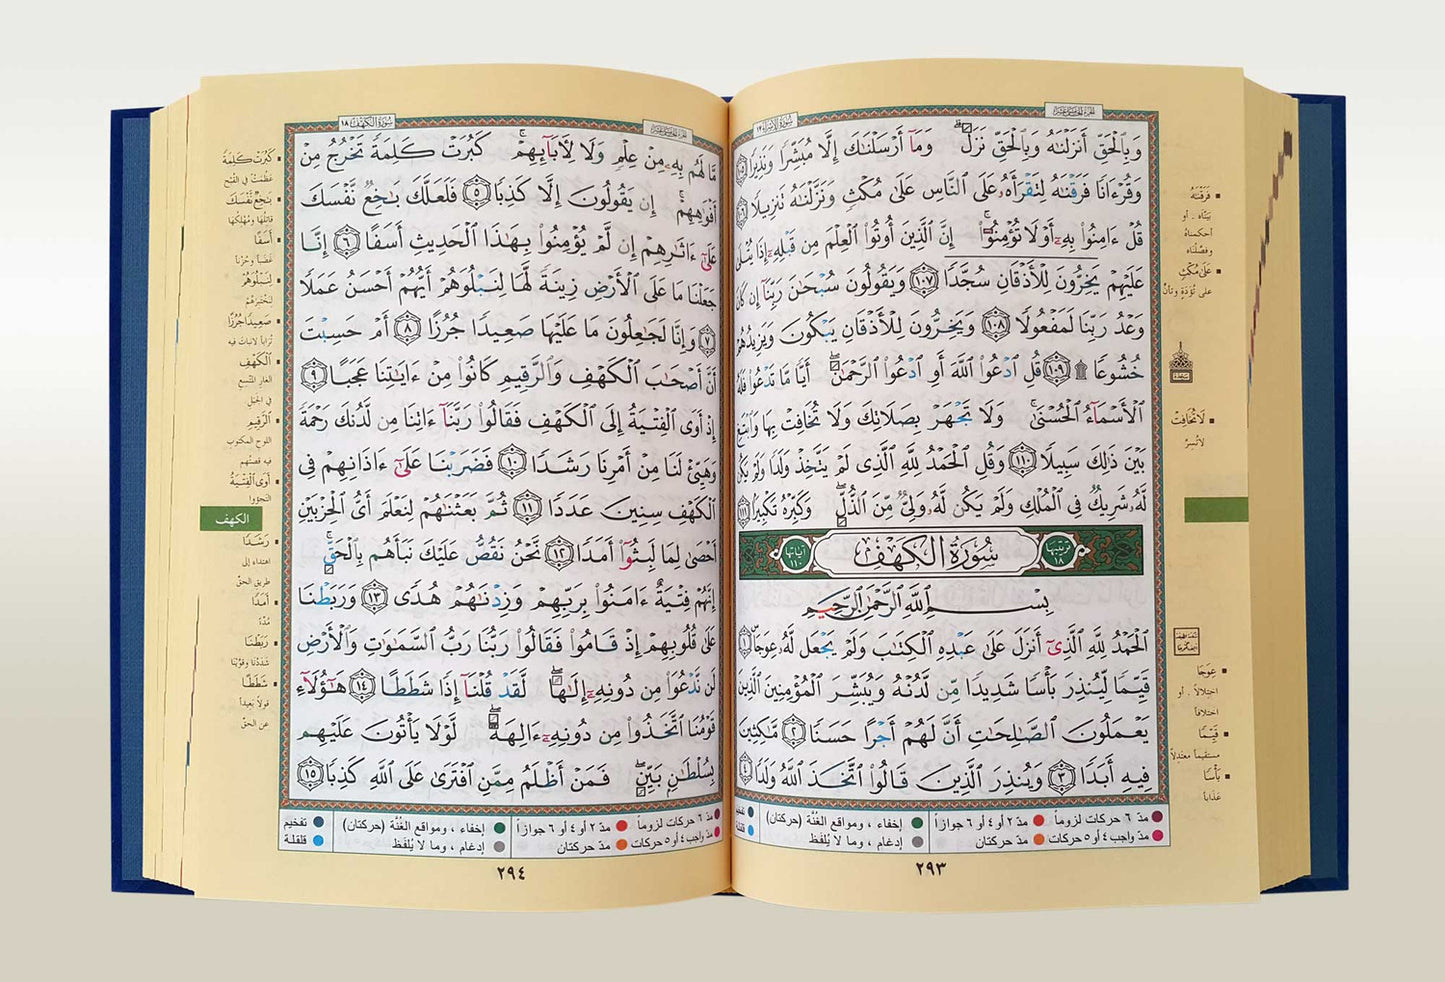 سُورَةُ الإِسْرَاء ١٧
وَبِٱلْحَقِّ أَنزَلْنَٰهُ وَبِٱلْحَقِّ نَزَلَ ۗ وَمَآ أَرْسَلْنَٰكَ إِلَّا مُبَشِّرًا وَنَذِيرًا ١٠٥
وَقُرْءَانًا فَرَقْنَٰهُ لِتَقْرَأَهُۥ عَلَى ٱلنَّاسِ عَلَىٰ مُكْثٍ وَنَزَّلْنَٰهُ تَنزِيلًا ١٠٦
قُلْ ءَامِنُوا۟ بِهِۦٓ أَوْ لَا تُؤْمِنُوٓا۟ ۚ إِنَّ ٱلَّذِينَ أُوتُوا۟ ٱلْعِلْمَ مِن قَبْلِهِۦٓ إِذَا يُتْلَىٰ
عَلَيْهِمْ يَخِرُّونَ لِلْأَذْقَانِ سُجَّدًا ١٠٧ وَيَقُولُونَ سُبْحَٰنَ رَبِّنَآ إِن كَانَ
وَعْدُ رَبِّنَا لَمَفْعُولًا ١٠٨ وَيَخِرُّونَ لِلْأَذْقَانِ يَبْكُونَ وَيَزِيدُهُمْ
خُشُوعًا ۩ ١٠٩ قُلِ ٱدْعُوا۟ ٱللَّهَ أَوِ ٱدْعُوا۟ ٱلرَّحْمَٰنَ ۖ أَيًّا مَّا تَدْعُوا۟ فَلَهُ
ٱلْأَسْمَآءُ ٱلْحُسْنَىٰ ۚ وَلَا تَجْهَرْ بِصَلَاتِكَ وَلَا تُخَافِتْ بِهَا وَٱبْتَغِ
بَيْنَ ذَٰلِكَ سَبِيلًا ١١٠ وَقُلِ ٱلْحَمْدُ لِلَّهِ ٱلَّذِى لَمْ يَتَّخِذْ وَلَدًا وَلَمْ يَكُن
لَّهُۥ شَرِيكٌ فِى ٱلْمُلْكِ وَلَمْ يَكُن لَّهُۥ وَلِىٌّ مِّنَ ٱلذُّلِّ ۖ وَكَبِّرْهُ تَكْبِيرًۢا ١١١
ترتيبها ١٨ سُورَةُ الكَهْفِ آياتها ١١٠
بِسْمِ ٱللَّهِ ٱلرَّحْمَٰنِ ٱلرَّحِيمِ
ٱلْحَمْدُ لِلَّهِ ٱلَّذِىٓ أَنزَلَ عَلَىٰ عَبْدِهِ ٱلْكِتَٰبَ وَلَمْ يَجْعَل لَّهُۥ عِوَجَا ۜ ١
قَيِّمًا لِّيُنذِرَ بَأْسًا شَدِيدًا مِّن لَّدُنْهُ وَيُبَشِّرَ ٱلْمُؤْمِنِينَ ٱلَّذِينَ
يَعْمَلُونَ ٱلصَّٰلِحَٰتِ أَنَّ لَهُمْ أَجْرًا حَسَنًا ٢ مَّٰكِثِينَ
فِيهِ أَبَدًا ٣ وَيُنذِرَ ٱلَّذِينَ قَالُوا۟ ٱتَّخَذَ ٱللَّهُ وَلَدًا ٤
فَرَقْنَٰهُ
بيّنّاه . أو
أحكمناهُ
وفصّلناه
عَلَىٰ مُكْثٍ
على تُؤَدَةٍ وتأنٍّ
لَا تُخَافِتْ
لا تُسِرَّ
عِوَجَا
اختِلالاً . أو
اختلافاً
قَيِّمًا
مستقيماً معتدِلاً
بَأْسًا
عَذاباً
مدّ ٦ حركات لزوماً مدّ ٢ أو ٤ أو ٦ جوازاً إخفاء ، ومواقع الغُنّة (حركتان) تفخيم
مدّ واجب ٤ أو ٥ حركات مدّ حركتان إدغام ، وما لا يُلفظ قلقلة
٢٩٣
سُورَةُ الكَهْفِ ١٨
مَّا لَهُم بِهِۦ مِنْ عِلْمٍ وَلَا لِءَابَآئِهِمْ ۚ كَبُرَتْ كَلِمَةً تَخْرُجُ مِنْ
أَفْوَٰهِهِمْ ۚ إِن يَقُولُونَ إِلَّا كَذِبًا ٥ فَلَعَلَّكَ بَٰخِعٌ نَّفْسَكَ
عَلَىٰٓ ءَاثَٰرِهِمْ إِن لَّمْ يُؤْمِنُوا۟ بِهَٰذَا ٱلْحَدِيثِ أَسَفًا ٦ إِنَّا
جَعَلْنَا مَا عَلَى ٱلْأَرْضِ زِينَةً لَّهَا لِنَبْلُوَهُمْ أَيُّهُمْ أَحْسَنُ عَمَلًا
٧ وَإِنَّا لَجَٰعِلُونَ مَا عَلَيْهَا صَعِيدًا جُرُزًا ٨ أَمْ حَسِبْتَ
أَنَّ أَصْحَٰبَ ٱلْكَهْفِ وَٱلرَّقِيمِ كَانُوا۟ مِنْ ءَايَٰتِنَا عَجَبًا ٩
إِذْ أَوَى ٱلْفِتْيَةُ إِلَى ٱلْكَهْفِ فَقَالُوا۟ رَبَّنَآ ءَاتِنَا مِن لَّدُنكَ رَحْمَةً
وَهَيِّئْ لَنَا مِنْ أَمْرِنَا رَشَدًا ١٠ فَضَرَبْنَا عَلَىٰٓ ءَاذَانِهِمْ فِى
ٱلْكَهْفِ سِنِينَ عَدَدًا ١١ ثُمَّ بَعَثْنَٰهُمْ لِنَعْلَمَ أَىُّ ٱلْحِزْبَيْنِ
أَحْصَىٰ لِمَا لَبِثُوٓا۟ أَمَدًا ١٢ نَّحْنُ نَقُصُّ عَلَيْكَ نَبَأَهُم بِٱلْحَقِّ ۚ
إِنَّهُمْ فِتْيَةٌ ءَامَنُوا۟ بِرَبِّهِمْ وَزِدْنَٰهُمْ هُدًى ١٣ وَرَبَطْنَا
عَلَىٰ قُلُوبِهِمْ إِذْ قَامُوا۟ فَقَالُوا۟ رَبُّنَا رَبُّ ٱلسَّمَٰوَٰتِ وَٱلْأَرْضِ
لَن نَّدْعُوَا۟ مِن دُونِهِۦٓ إِلَٰهًا ۖ لَّقَدْ قُلْنَآ إِذًا شَطَطًا ١٤ هَٰٓؤُلَآءِ
قَوْمُنَا ٱتَّخَذُوا۟ مِن دُونِهِۦٓ ءَالِهَةً ۖ لَّوْلَا يَأْتُونَ عَلَيْهِم
بِسُلْطَٰنٍۭ بَيِّنٍ ۖ فَمَنْ أَظْلَمُ مِمَّنِ ٱفْتَرَىٰ عَلَى ٱللَّهِ كَذِبًا ١٥
كَبُرَتْ كَلِمَةً
عَظُمَتْ في القُبْح
بَٰخِعٌ نَّفْسَكَ
قاتلُها ومُهْلِكها
أَسَفًا
غَضَباً وحُزْناً
لِنَبْلُوَهُمْ
لِنَختبِرَهُم
صَعِيدًا جُرُزًا
تُرَاباً لا نَباتَ فيه
ٱلْكَهْفِ
الغارِ المُتَّسِع
في الجَبَل
ٱلرَّقِيمِ
اللوح المكتوب
فيه قصتُهم
أَوَى ٱلْفِتْيَةُ
التجؤوا
الكهف
رَشَدًا
اهتداء إلى
طريقِ الحقّ
أَمَدًا
مُدّةً
رَبَطْنَا
شَدَدْنا وقوَّيْنا
شَطَطًا
قولاً بَعيداً
عن الحقّ
مدّ ٦ حركات لزوماً مدّ ٢ أو ٤ أو ٦ جوازاً إخفاء ، ومواقع الغُنّة (حركتان) تفخيم
مدّ واجب ٤ أو ٥ حركات مدّ حركتان إدغام ، وما لا يُلفظ قلقلة
٢٩٤